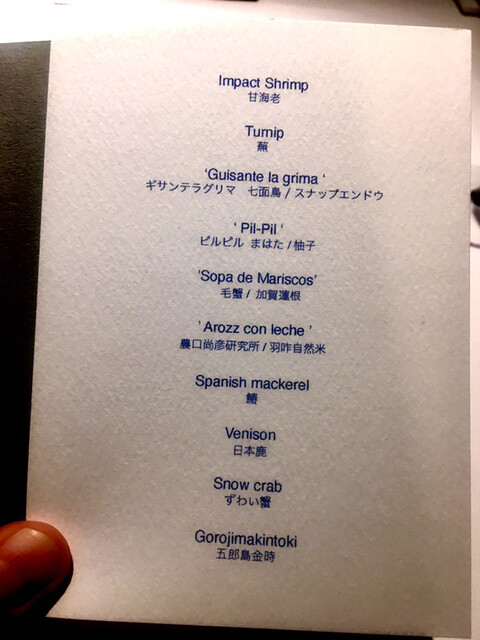 Impact Shrimp
甘海老
Turnip
蕪
'Guisante la grima '
ギサンテラグリマ 七面鳥 / スナップエンドウ
' Pil-Pil '
ピルピル まはた / 柚子
'Sopa de Mariscos'
毛蟹 / 加賀蓮根
' Arozz con leche '
農口尚彦研究所 / 羽咋自然米
Spanish mackerel
鰆
Venison
日本鹿
Snow crab
ずわい蟹
Gorojimakintoki
五郎島金時